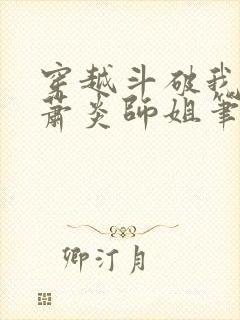 穿越斗破我
萧炎師姐筆
卿汀月